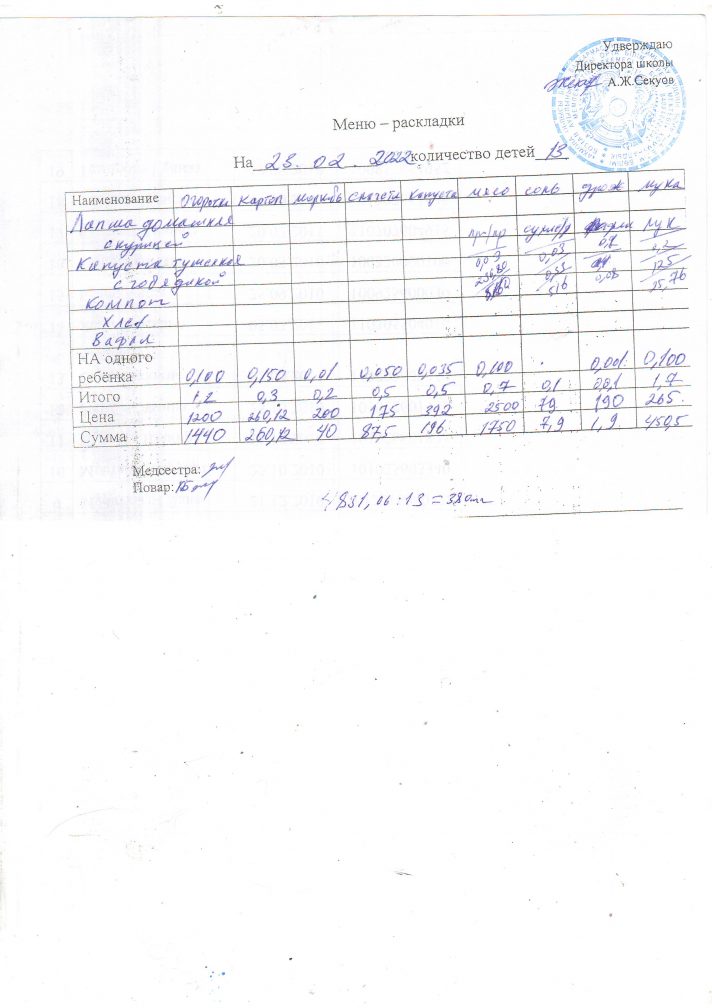 Удверждаю
Директора школы
А.Ж.Секуов
Меню – раскладки
На 23. 02. 2022 количество детей 13
Наименование огорчки картоп морковь спагетти капуста мясо соль дрож мука
Лапша домашняя
с курицей
Капуста тушеная
с говядиной
пр-/пр сухие/р лук
0,03 0,03 0,1 0,2
125
516 0,08 25,76
Компот
Хлеб
Вафли
НА одного
ребёнка 0,100 0,150 0,01 0,050 0,035 0,100 0,001 0,100
Итого 1,2 0,3 0,2 0,5 0,5 0,7 0,1 0,01 1,7
Цена 1200 260,12 200 175 392 2500 79 190 265
Сумма 1440 260,12 40 875 196 1750 7,9 1,9 450,5
Медсестра:
Повар:
4831,06 : 13 = 380тг